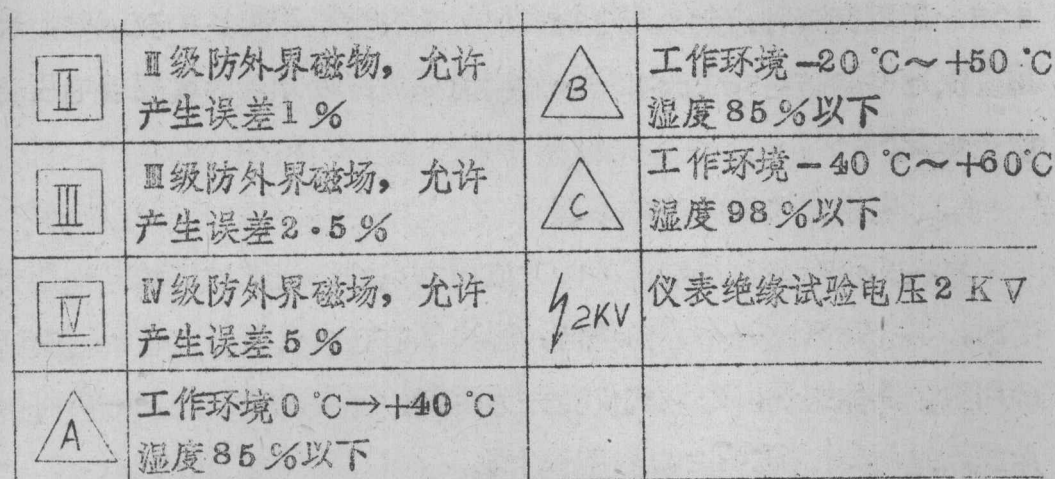 Ⅱ
Ⅱ级防外界磁物，允许
产生误差1%
B
工作环境-20℃～+50℃
湿度85%以下
Ⅲ
Ⅲ级防外界磁场，允许
产生误差2·5%
C
工作环境-40℃～+60℃
湿度98%以下
Ⅳ
Ⅳ级防外界磁场，允许
产生误差5%
2KV
仪表绝缘试验电压2KV
A
工作环境0℃→+40℃
湿度85%以下